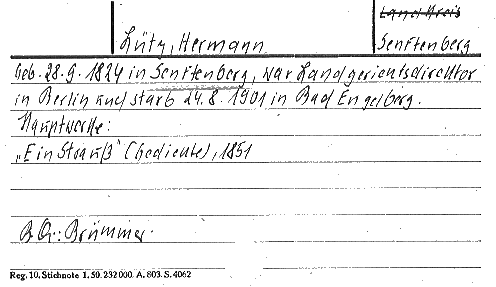 Land Kreis
Lütz, Hermann
Senftenberg
Geb. 28.9.1824 in Senftenberg, war Landgerichtsdirektor
in Berlin und starb 24.8.1901 in Bad Engelberg.
Hauptwerke:
„Ein Strauß" (Gedichte), 1851
B.Qu.: Brümmer.
Reg. 10. Stichnote 1. 50. 232000. A. 803. S. 4062